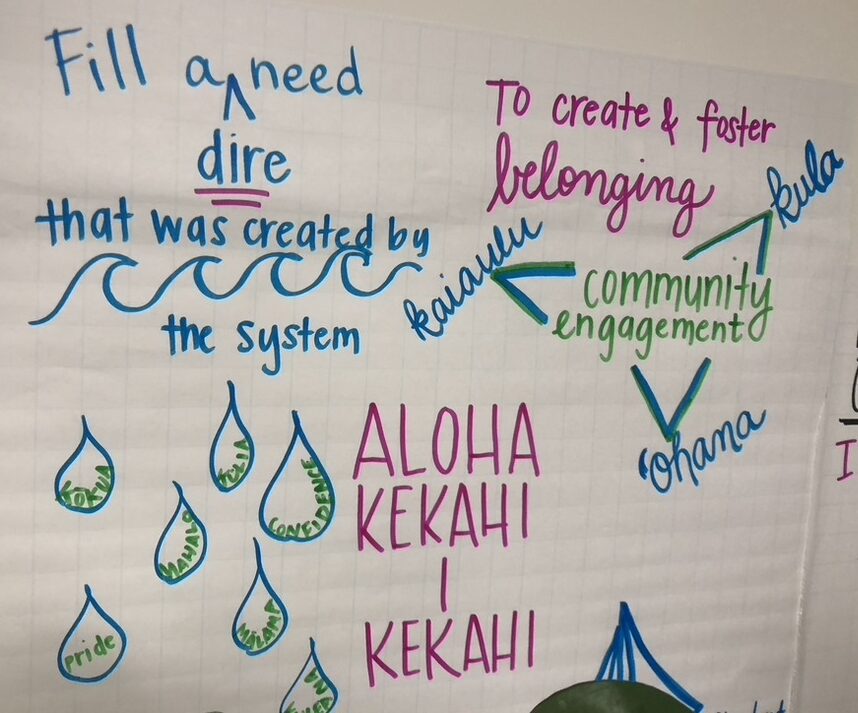 Fill a need
dire
that was created by
the system
To create & foster
belonging
kula
kaiaulu
community
engagement
'ohana
KŌKUA
KŪLIA
CONFIDENCE
MAHALO
MĀLAMA
pride
ALOHA
KEKAHI
I
KEKAHI
I